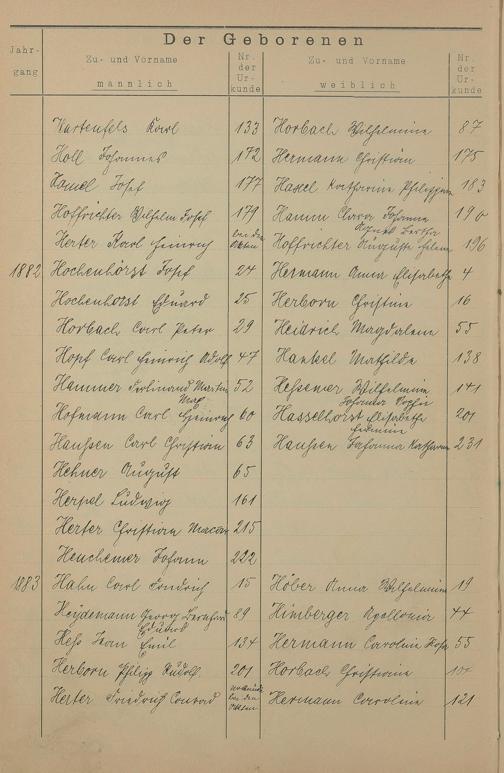 Der Geborenen
Jahr-
gang
Zu- und Vorname
männlich
Nr.
der
Ur-
kunde
Zu- und Vorname
weiblich
Nr.
der
Ur-
kunde
Wartenfels Karl 133 Horbach Wilhelmine 87
Holl Johannes 172 Hermann Christian 175
Josef 177 Katharine 183
Hoffrichter Wilhelm Josef 179 Hamm Clara Johanna
Agnes Bertha
Herter Karl Heinrich bei den Akten Hoffrichter Auguste Helene 196
1882 Hochenhorst Josef 24 Hermann Anna Elisabethe 4
Hochenhorst Eduard 25 Herborn Christine 16
Horbach Carl Peter 29 Heidrich Magdalene 55
Hopf Carl Heinrich Adolf 47 Hankel Mathilde 138
Hammer Ferdinand Martin 52 Hessemer Wilhelmine 141
Max Johanna Sophie
Hofmann Carl Heinrich 60 Hasselhorst Elisabethe 201
Hanssen Carl Christian 63 Hanssen Johanna Katharina 231
Hehner August 65
Herpel Ludwig 161
Herter Christian 215
Heuchemer Johann 222
1883 Hahn Carl Friedrich 15 Höber Anna Wilhelmine 19
Heydemann Georg Bernhard 89 Himberger Apollonia 44
Eduard
Hess Jean Emil 134 Hermann Caroline Rosa 55
Herborn Philipp Rudolf 201 Horbach Christiane
Herter Friedrich Conrad bei den Akten Hermann Caroline 121